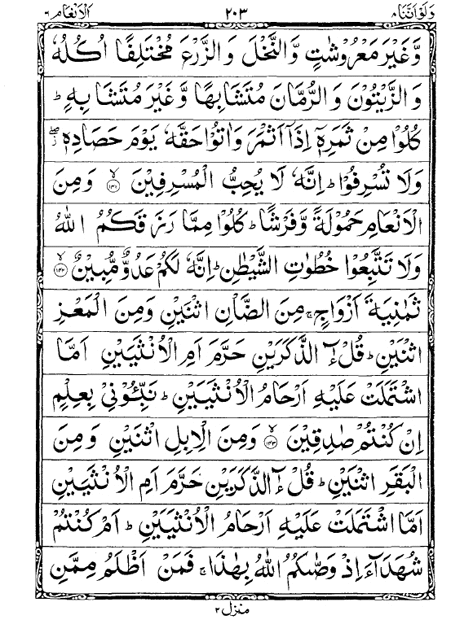 ولواننا ٨ ٢٠٣ الانعام ٦
وَّغَيْرَ مَعْرُوْشٰتٍ وَّالنَّخْلَ وَالزَّرْعَ مُخْتَلِفًا اُكُلُهٗ
وَالزَّيْتُوْنَ وَالرُّمَّانَ مُتَشَابِهًا وَّغَيْرَ مُتَشَابِهٍ ؕ
كُلُوْا مِنْ ثَمَرِهٖۤ اِذَاۤ اَثْمَرَ وَاٰتُوْا حَقَّهٗ يَوْمَ حَصَادِهٖ ۖ
وَلَا تُسْرِفُوْا ؕ اِنَّهٗ لَا يُحِبُّ الْمُسْرِفِيْنَ ﴿۱۴۱﴾ وَمِنَ
الْاَنْعَامِ حَمُوْلَةً وَّفَرْشًا ؕ كُلُوْا مِمَّا رَزَقَكُمُ اللّٰهُ
وَلَا تَتَّبِعُوْا خُطُوٰتِ الشَّيْطٰنِ ؕ اِنَّهٗ لَكُمْ عَدُوٌّ مُّبِيْنٌ ﴿۱۴۲﴾
ثَمٰنِيَةَ اَزْوَاجٍ ۚ مِنَ الضَّاْنِ اثْنَيْنِ وَمِنَ الْمَعْزِ
اثْنَيْنِ ؕ قُلْ ءٰٓالذَّكَرَيْنِ حَرَّمَ اَمِ الْاُنْثَيَيْنِ اَمَّا
اشْتَمَلَتْ عَلَيْهِ اَرْحَامُ الْاُنْثَيَيْنِ ؕ نَبِّـُٔوْنِيْ بِعِلْمٍ
اِنْ كُنْتُمْ صٰدِقِيْنَ ﴿۱۴۳﴾ وَمِنَ الْاِبِلِ اثْنَيْنِ وَمِنَ
الْبَقَرِ اثْنَيْنِ ؕ قُلْ ءٰٓالذَّكَرَيْنِ حَرَّمَ اَمِ الْاُنْثَيَيْنِ
اَمَّا اشْتَمَلَتْ عَلَيْهِ اَرْحَامُ الْاُنْثَيَيْنِ ؕ اَمْ كُنْتُمْ
شُهَدَآءَ اِذْ وَصّٰىكُمُ اللّٰهُ بِهٰذَا ۚ فَمَنْ اَظْلَمُ مِمَّنِ
منزل ٢